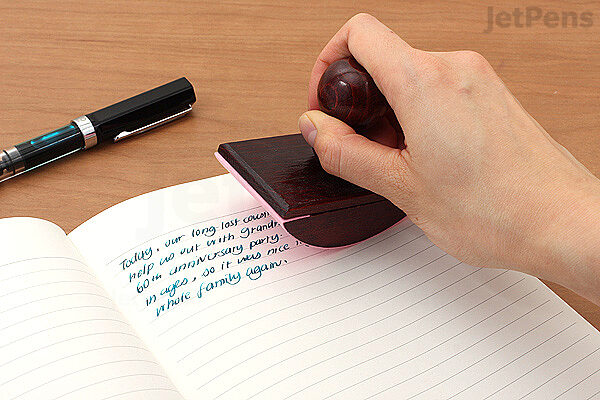 JetPens
Today, our long-lost cousin
help us out with Grandm
60th anniversary party.
in ages, so it was nice
whole family again.